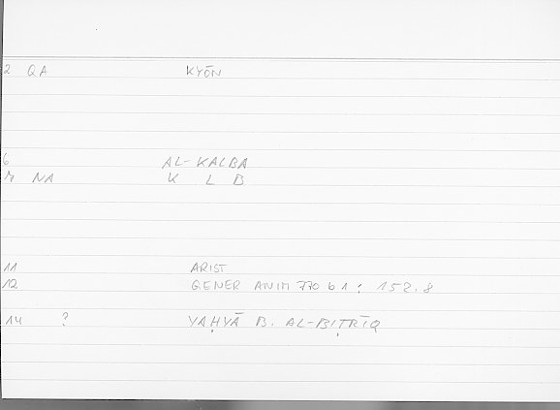 2 QA KYŌN
6 AL-KALBA
7 NA K L B
11 ARIST
12 GENER ANIM 770 b 1 : 152.8
14 ? YAḤYĀ B. AL-BIṬRĪQ